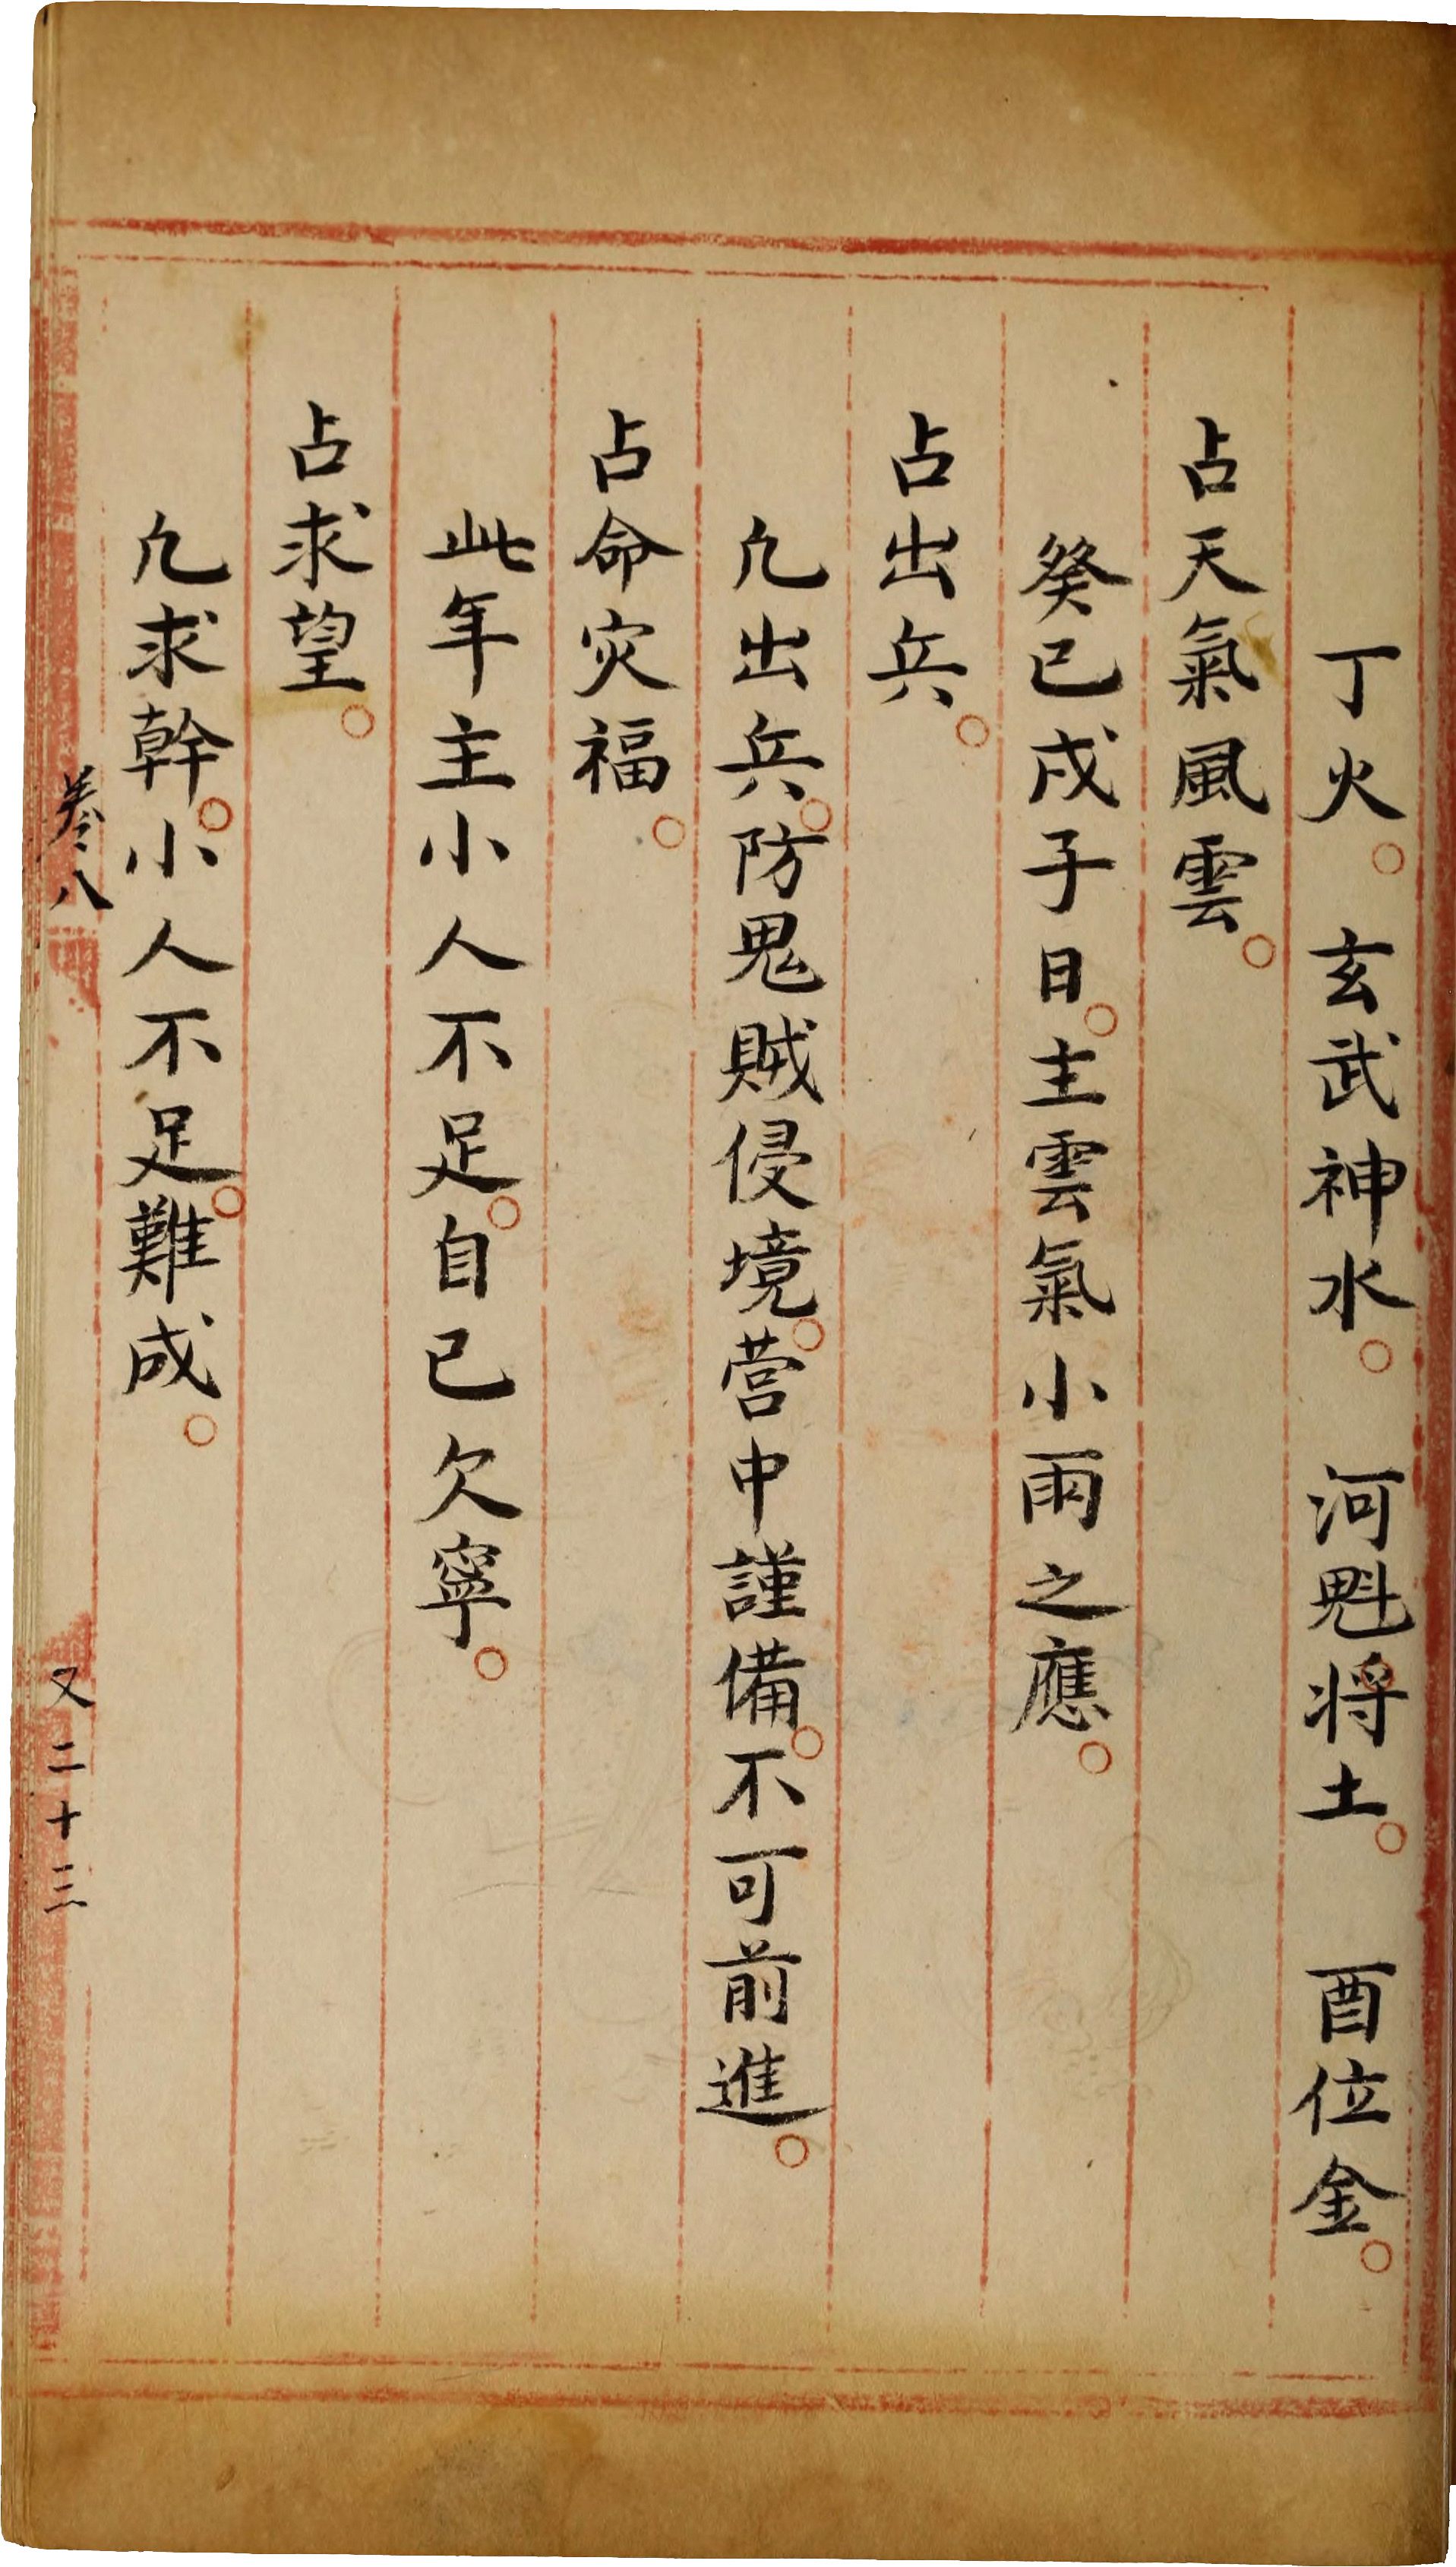 丁火。玄武神水。河魁将土。酉位金。
占天氣風雲。
癸巳戊子日。主雲氣小雨之應。
占出兵。
凢出兵。防鬼賊侵境。营中謹備。不可前進。
占命灾福。
此年主小人不足。自己欠寧。
占求望。
凢求幹。小人不足。難成。
卷八
又二十三